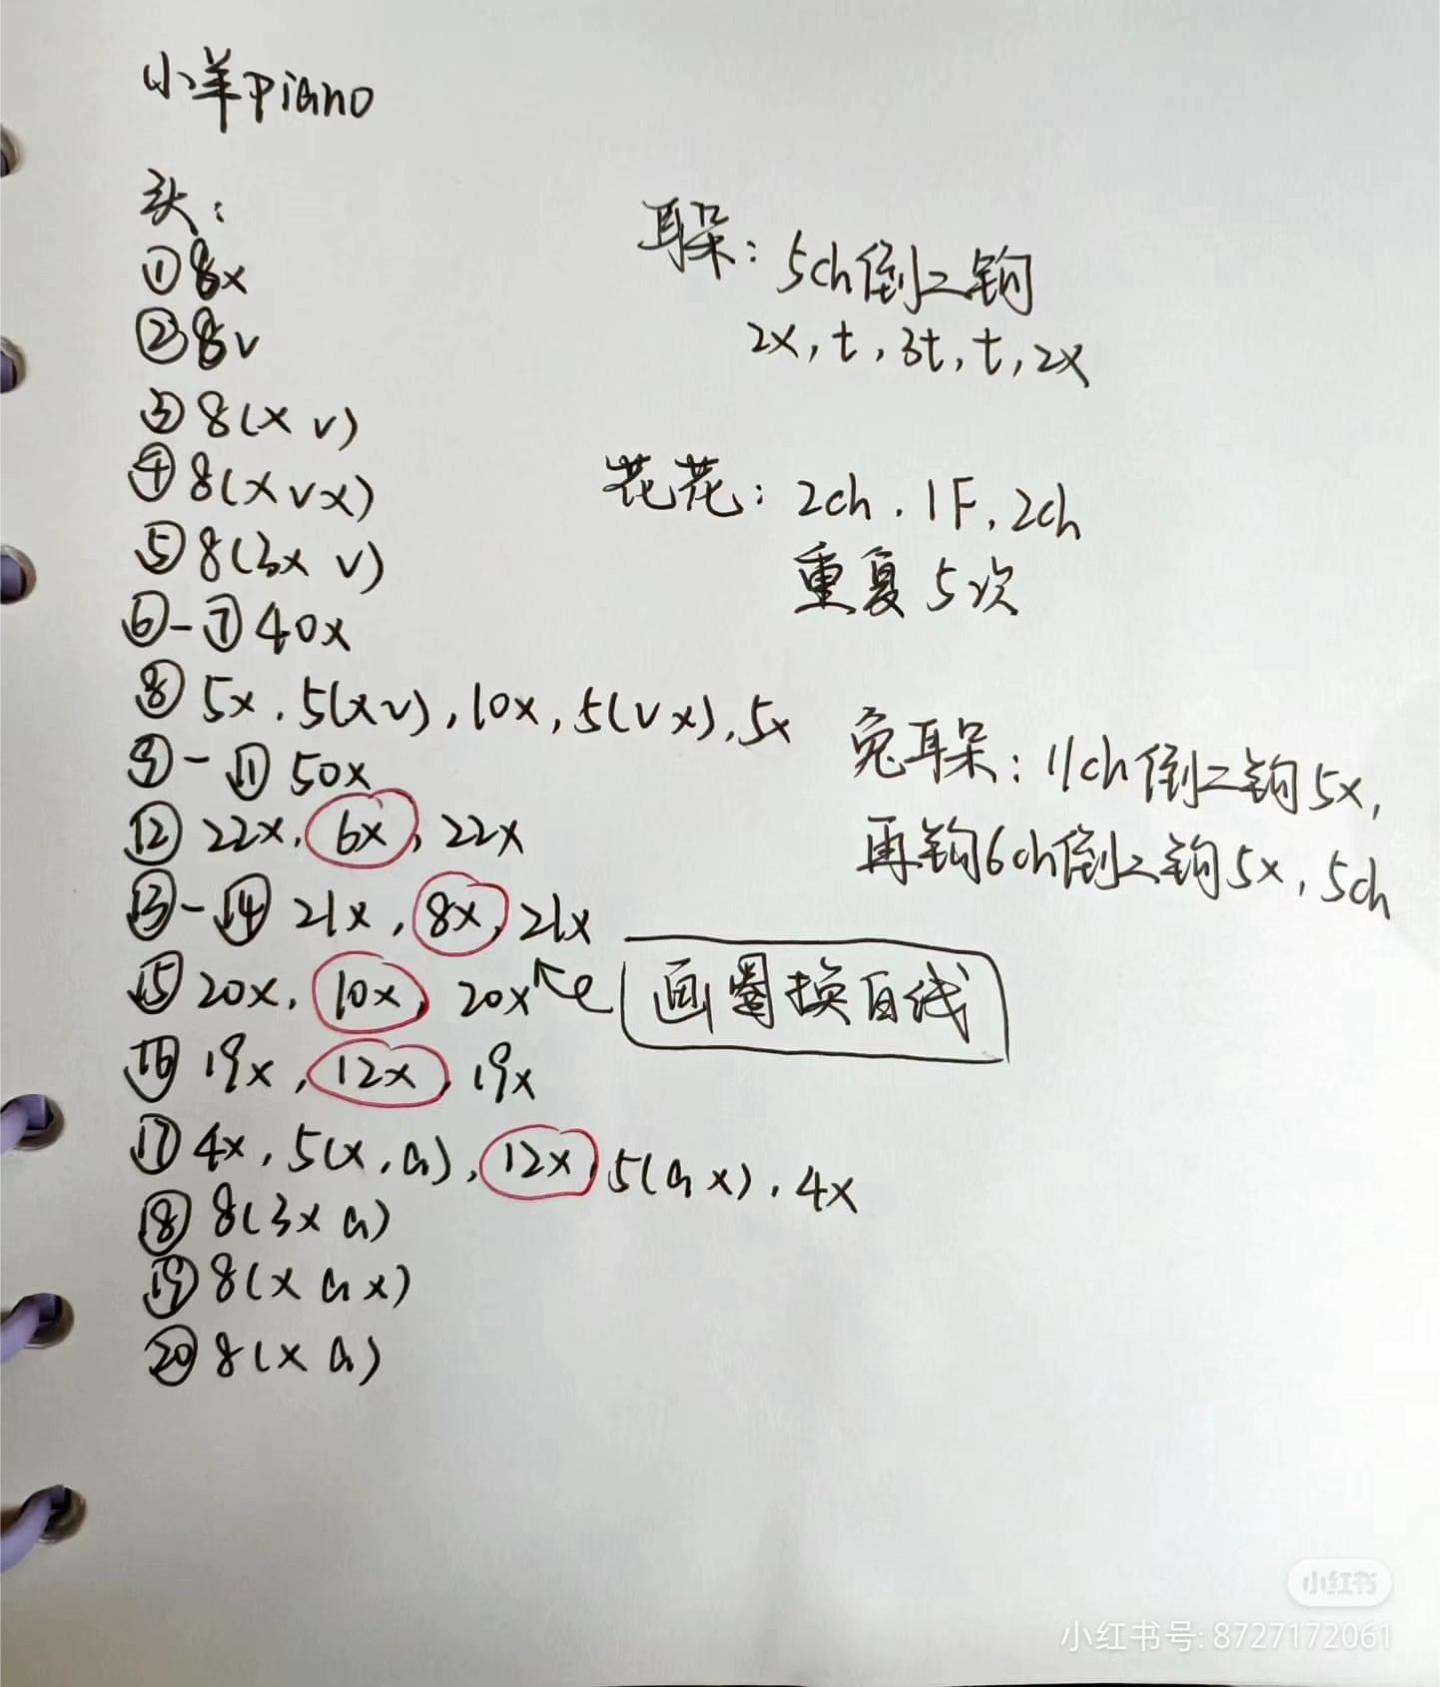 小羊piano
头：
①8x
②8v
③8(x v)
④8(x v x)
⑤8(3x v)
⑥-⑦40x
⑧5x, 5(xv), 10x, 5(v x), 5x
⑨-⑪50x
⑫22x, 6x, 22x
⑬-⑭21x, 8x, 21x
⑮20x, 10x, 20x
⑯19x, 12x, 19x
⑰4x, 5(x, A), 12x, 5(A x), 4x
⑱8(3x A)
⑲8(x A x)
⑳8(x A)
耳朵：5ch倒二钩
2x, t, 3t, t, 2x
花花：2ch, 1F, 2ch
重复5次
兔耳朵：11ch倒二钩5x,
再钩6ch倒二钩5x, 5ch
画圈换白线
小红书
小红书号: 8727172061